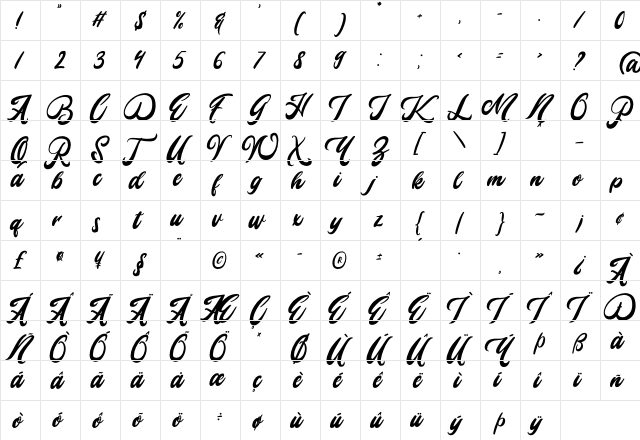 ! " # $ % & ' ( ) * + , - . / 0
1 2 3 4 5 6 7 8 9 : ; < = > ? @
A B C D E F G H I J K L M N O P
Q R S T U V W X Y Z [ \ ] ^ _ `
a b c d e f g h i j k l m n o p
q r s t u v w x y z { | } ~ ¡ ¢
£ ¤ ¥ § ¨ © « ¬ ® ± ´ ¸ » ¿ À
Á Â Ã Ä Å Æ Ç È É Ê Ë Ì Í Î Ï Ð
Ñ Ò Ó Ô Õ Ö × Ø Ù Ú Û Ü Ý þ ß à
á â ã ä å æ ç è é ê ë ì í î ï ñ
ò ó ô õ ö ÷ ø ù ú û ü ý þ ÿ